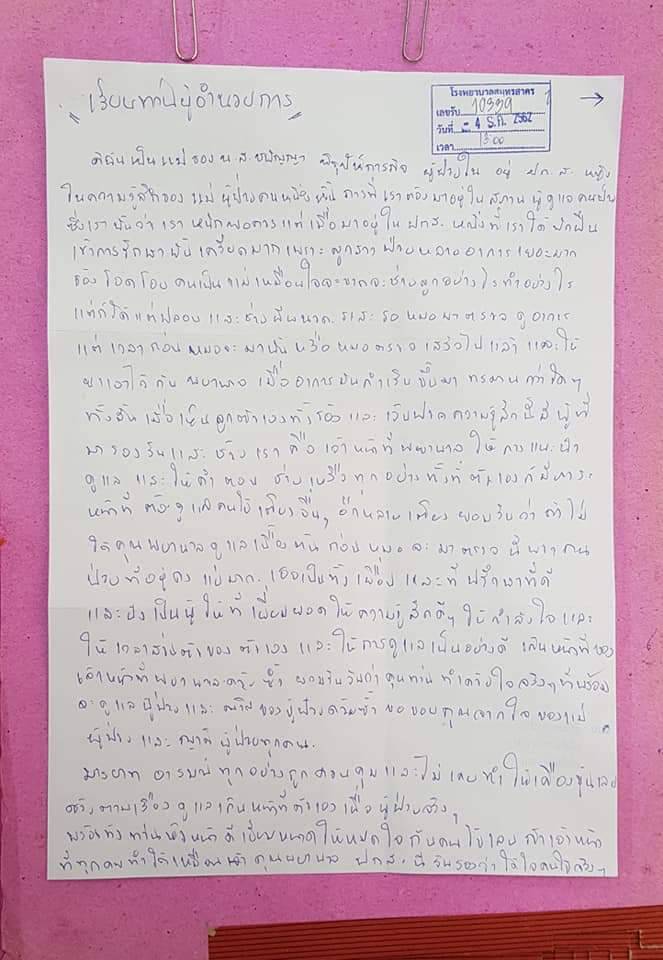 เรียนท่านผู้อำนวยการ
โรงพยาบาลสมุทรสาคร
เลขรับ 10339
วันที่ - 4 ธ.ค. 2562
เวลา 13:00
ดิฉันเป็นแม่ของ น.ส. ผู้ป่วยใน อยู่ หญิง
ในความรู้สึกของแม่ ผู้ป่วยคนหนึ่ง ที่เราต้องมาอยู่ในสถาน ผู้ดูแลคนป่วย
ซึ่งเรา ว่าเรา หนักพอควร แต่เมื่อมาอยู่ใน หญิงที่เราได้
เข้าการรักษา เครียดมากเพราะลูกสาว ป่วยหลายอาการเยอะมาก
ร้องโอดโอย คนเป็นแม่เหมือนใจจะขาดจะช่วยลูกอย่างไรทำอย่างไร
แต่ก็ได้แต่ปลอบและช่วย และรอหมอมาตรวจดูอาการ
แต่เวลาก่อนหมอจะมานั้น หรือหมอตรวจเสร็จไปแล้ว และให้
ยาเอาไว้กับพยาบาล เมื่ออาการมันกำเริบขึ้นมา ทรมานกว่าใดๆ
ทั้งสิ้นเมื่อเห็นลูกตัวเองทั้งร้องและเจ็บปวด ความรู้สึกนี้มีผู้ที่
มารองรับและช่วยเราคือเจ้าหน้าที่พยาบาลให้การแนะนำ
ดูแล และให้คำตอบ ช่วยเหลือทุกอย่างทั้งที่ตัวเองก็มีภาระ
หน้าที่ต้องดูแลคนไข้เตียงอื่นๆ อีกหลายเตียง ยอมรับว่าถ้าไม่
ได้คุณพยาบาลดูแลเบื้องต้นก่อนหมอจะมาตรวจนี้ คน
ป่วยที่อยู่คงแย่มาก เธอเป็นทั้งเพื่อนและที่ปรึกษาที่ดี
และยังเป็นผู้ให้ที่เยี่ยมยอด ให้ความรู้สึกดีๆ ให้กำลังใจและ
ให้เวลาส่วนตัวของตัวเองและให้การดูแลเป็นอย่างดี เกินหน้าที่ของ
เจ้าหน้าที่พยาบาลด้วยซ้ำ ยอมรับว่าคุณท่านทำด้วยใจจริงๆ ที่พร้อม
จะดูแลผู้ป่วยและญาติของผู้ป่วยด้วยซ้ำ ขอขอบคุณจากใจของแม่
ผู้ป่วยและญาติผู้ป่วยทุกคน.
มารยาท อารมณ์ทุกอย่างถูกควบคุมและไม่เคยทำให้เคืองขุ่นเลย
ดูแลเกินหน้าที่ตัวเองเพื่อผู้ป่วยจริงๆ
พร้อมทั้งท่านหัวหน้าดีเยี่ยม ให้หมดใจกับคนไข้เลย ถ้าเจ้าหน้า
ที่ทุกคนทำได้เหมือน คุณพยาบาล นี้ รับรองว่าได้ใจคนไข้จริงๆ